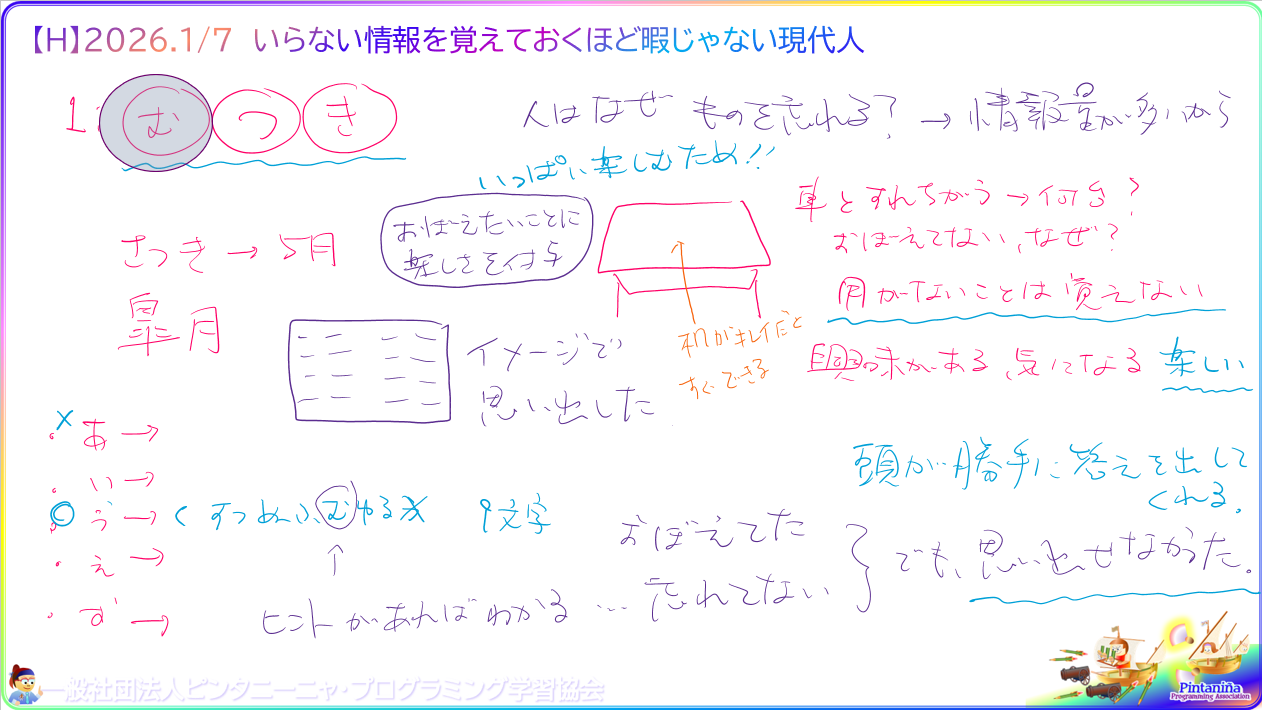 【H】2026.1/7 いらない情報を覚えておくほど暇じゃない現代人
1. むつき
人はなぜ ものを忘れる? → 情報量が多いから
いっぱい楽しむため!!
さつき → 5月
皐月
おぼえたいことに
楽しさを付与
車とすれちがう → 何台?
おぼえてない、なぜ?
用がないことは覚えない
興味がある、気になる 楽しい
机がキレイだと
すぐできる
イメージで
思い出した
× あ →
い →
◎ う → くすつぬふむゆる× 9文字
え →
お →
↑
ヒントがあればわかる…
頭が勝手に答えを出して
くれる.
おぼえてた
忘れてない
でも、思い出せなかった。
一般社団法人ピンタニーニャ・プログラミング学習協会
Pintanina
Programming Association